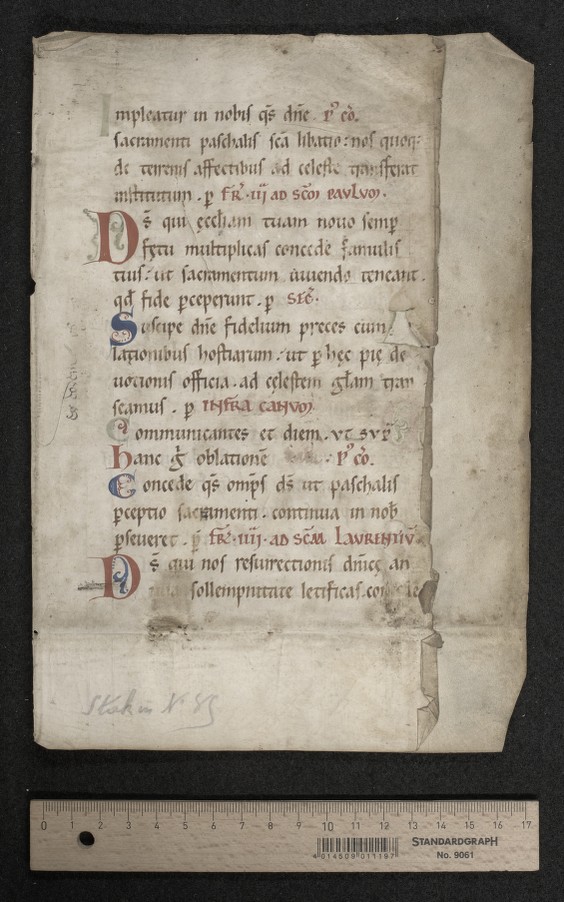 Impleatur in nobis q̄s dn̄e. p᷒ cō.
sacramenti paschalis sc̄a libatio: nos quoq:
de terrenis affectibus ad celeste transferat
institutum. p̲ FR̄. III AD SCM̄ PAVLVM.
Ds̄ qui ęccl̄iam tuam nouo semp̲
fętu multiplicas concede famulis
tuis: ut sacramentum uiuendo teneant.
qd̄ fide p̲ceperunt. p̲ SEC̄.
Suscipe dn̄e fidelium preces cum
lationibus hostiarum: ut p̲ hęc pię de
uotionis officia. ad celestem gl̄am tran
seamus. p̲ INFRA CANVOM
Communicantes et diem. VT SVP̄
Hanc ḡ oblationē p᷒ cō.
Concede q̄s omp̄s ds̄ ut paschalis
p̲ceptio sacramenti. continua in nob̄
p̲seueret. p̲ FR̄. IIII. AD SCM̄ LAVRENTIV̄
Ds̄ qui nos resurrectionis dn̄icę an
sollempnitate letificas.
0 1 2 3 4 5 6 7 8 9 10 11 12 13 14 15 16 17
4 014509 011197
STANDARDGRAPH
No. 9061